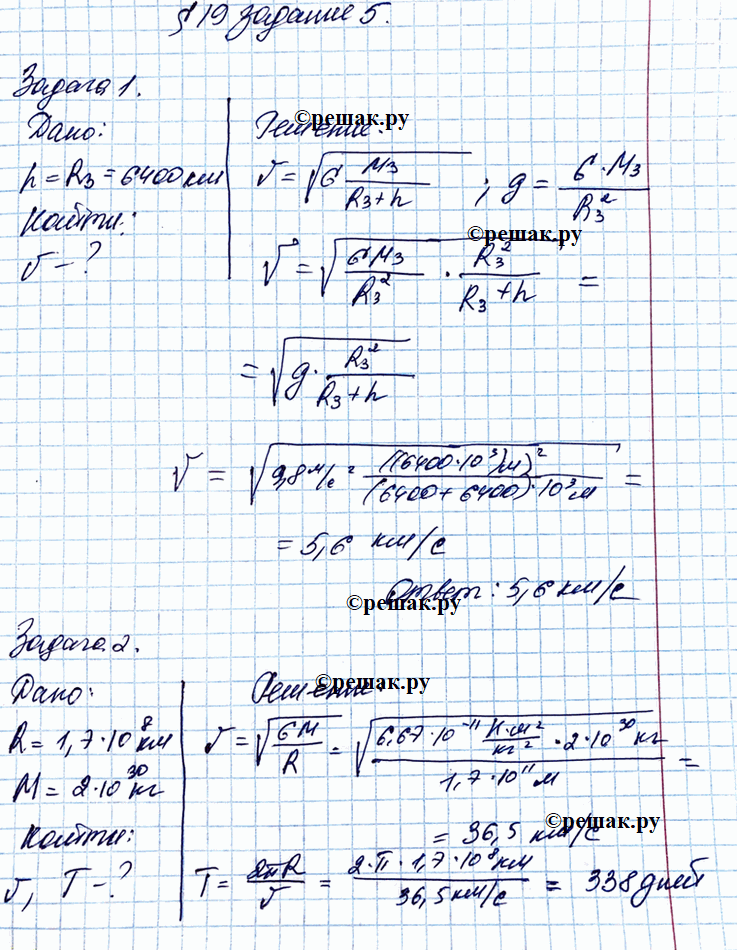 § 19 задание 5.
Задача 1.
Дано:
h = R₃ = 6400 км
Найти:
v - ?
Решение:
©решак.ру
v = √(G M₃ / (R₃ + h)) ; g = G · M₃ / R₃²
©решак.ру
v = √(G M₃ / R₃² · R₃² / (R₃ + h)) =
= √(g · R₃² / (R₃ + h))
v = √(9,8 м/с² ((6400 · 10³) м)² / (6400 + 6400) · 10³ м) =
= 5,6 км/с
Ответ: 5,6 км/с
©решак.ру
Задача 2.
Дано:
R = 1,7 · 10⁸ км
M = 2 · 10³⁰ кг
Найти:
v, T - ?
Решение:
©решак.ру
v = √(G M / R) = √(6,67 · 10⁻¹¹ Н·м²/кг² · 2 · 10³⁰ кг / 1,7 · 10¹¹ м) =
= 36,5 км/с
©решак.ру
T = 2πR / v = 2 · π · 1,7 · 10⁸ км / 36,5 км/с = 338 дней